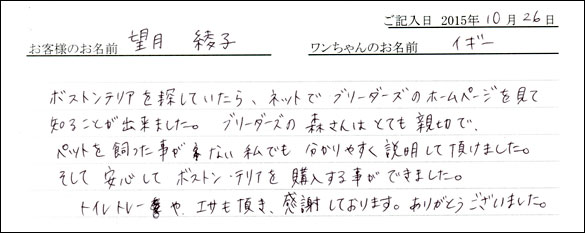 ご記入日 2015年10月26日
お客様のお名前 望月 綾子 ワンちゃんのお名前 イギー
ボストンテリアを探していたら、ネットでブリーダーズのホームページを見て
知ることが出来ました。ブリーダーズの森さんはとても親切で、
ペットを飼った事がない私でも分かりやすく説明して頂けました。
そして安心してボストン・テリアを購入する事ができました。
トイレトレーや、エサも頂き、感謝しております。ありがとうございました。